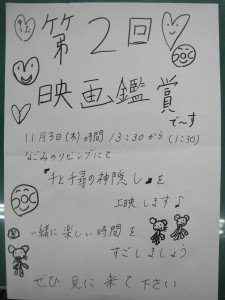 第2回
映画鑑賞
でーす
11月3日(木)時間 13:30から(1:30)
なごみのリビングにて
『千と千尋の神隠し』を
上映します♪
一緒に楽しい時間を
すごしましょう
ぜひ見に来て下さい